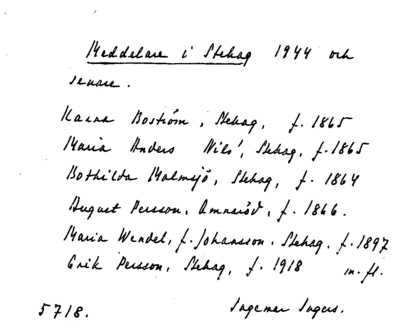 Meddelare i Stehag 1944 och
senare.
Karna Boström, Stehag, f. 1865
Maria Anders Nils', Stehag, f. 1865
Bothilda Malmsjö, Stehag, f. 1864
August Persson, Amnaröd, f. 1866.
Maria Wendel, f. Johansson, Stehag, f. 1897
Erik Persson, Stehag, f. 1918 m. fl.
5718. Ingemar Ingers.